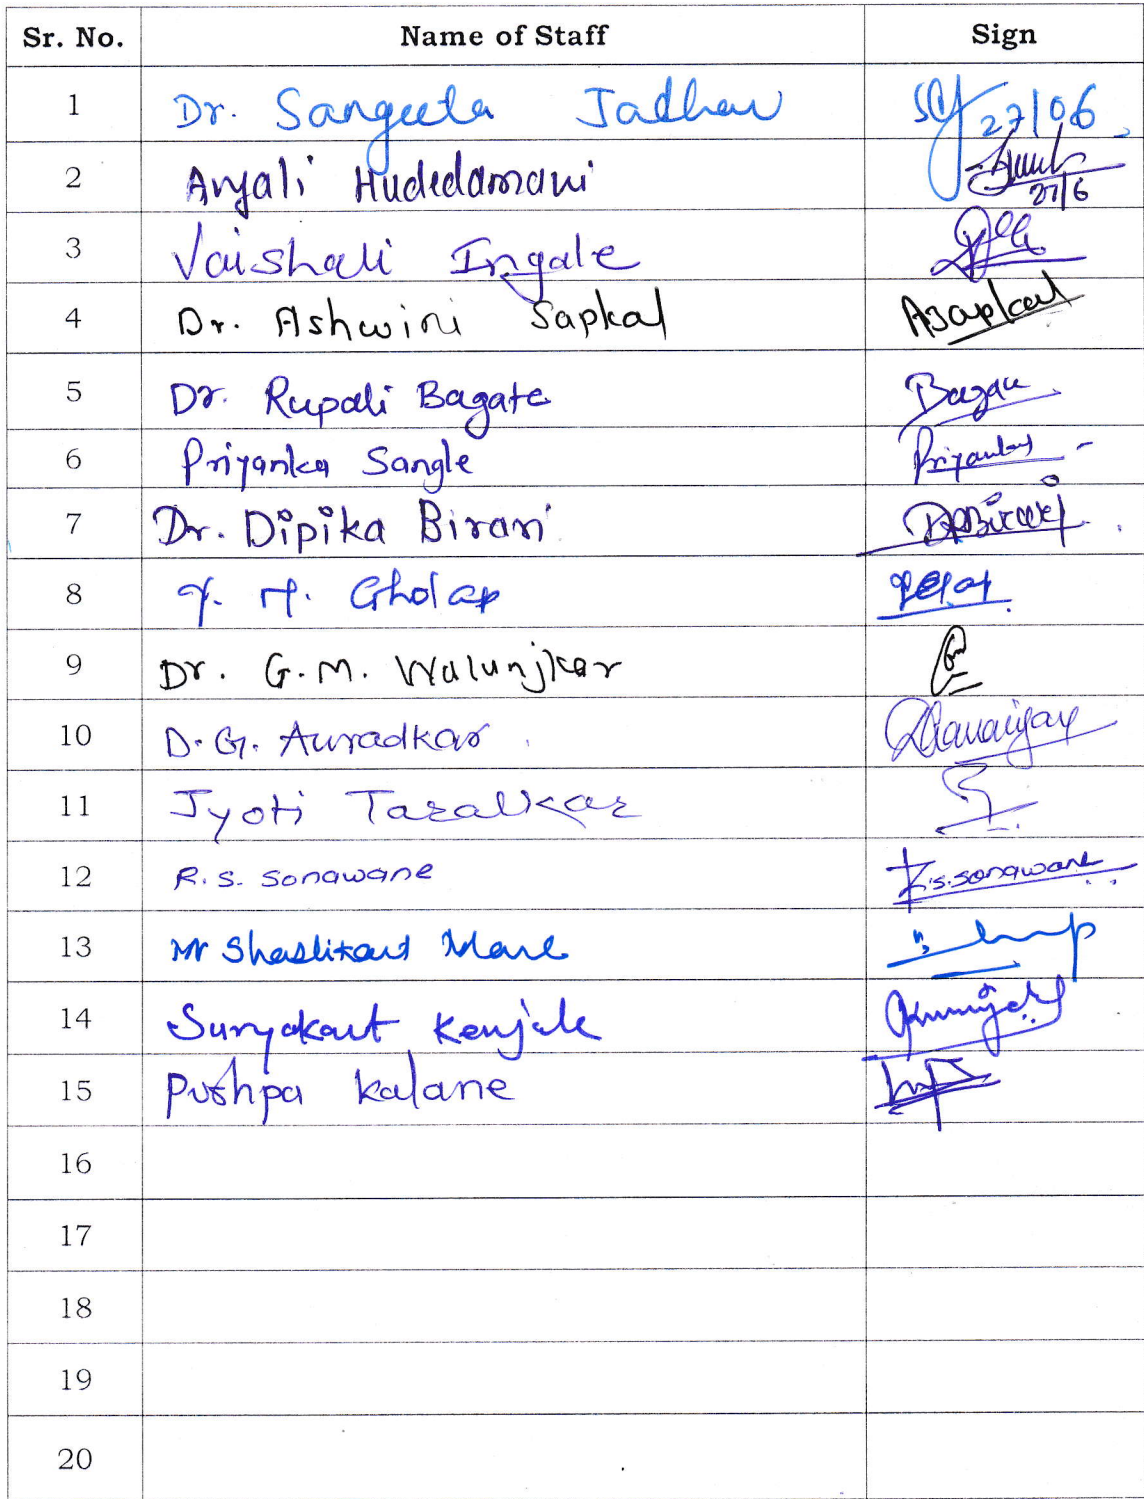 Sr. No. Name of Staff Sign
1 Dr. Sangeeta Jadhav 27/06
2 Anjali Hudedamani 27/6
3 Vaishali Ingale
4 Dr. Ashwini Sapkal ASapkal
5 Dr. Rupali Bagate
6 Priyanka Sangle Priyanka
7 Dr. Dipika Birari
8 Gholap
9 Dr. G.M. Walunjkar
10 D.G. Auradkar
11 Jyoti Taralkar
12 R.S. Sonawane R.S.Sonawane
13 Mr Shashikant
14 Suryakant Kenjale
15 Pushpa Kalane
16
17
18
19
20